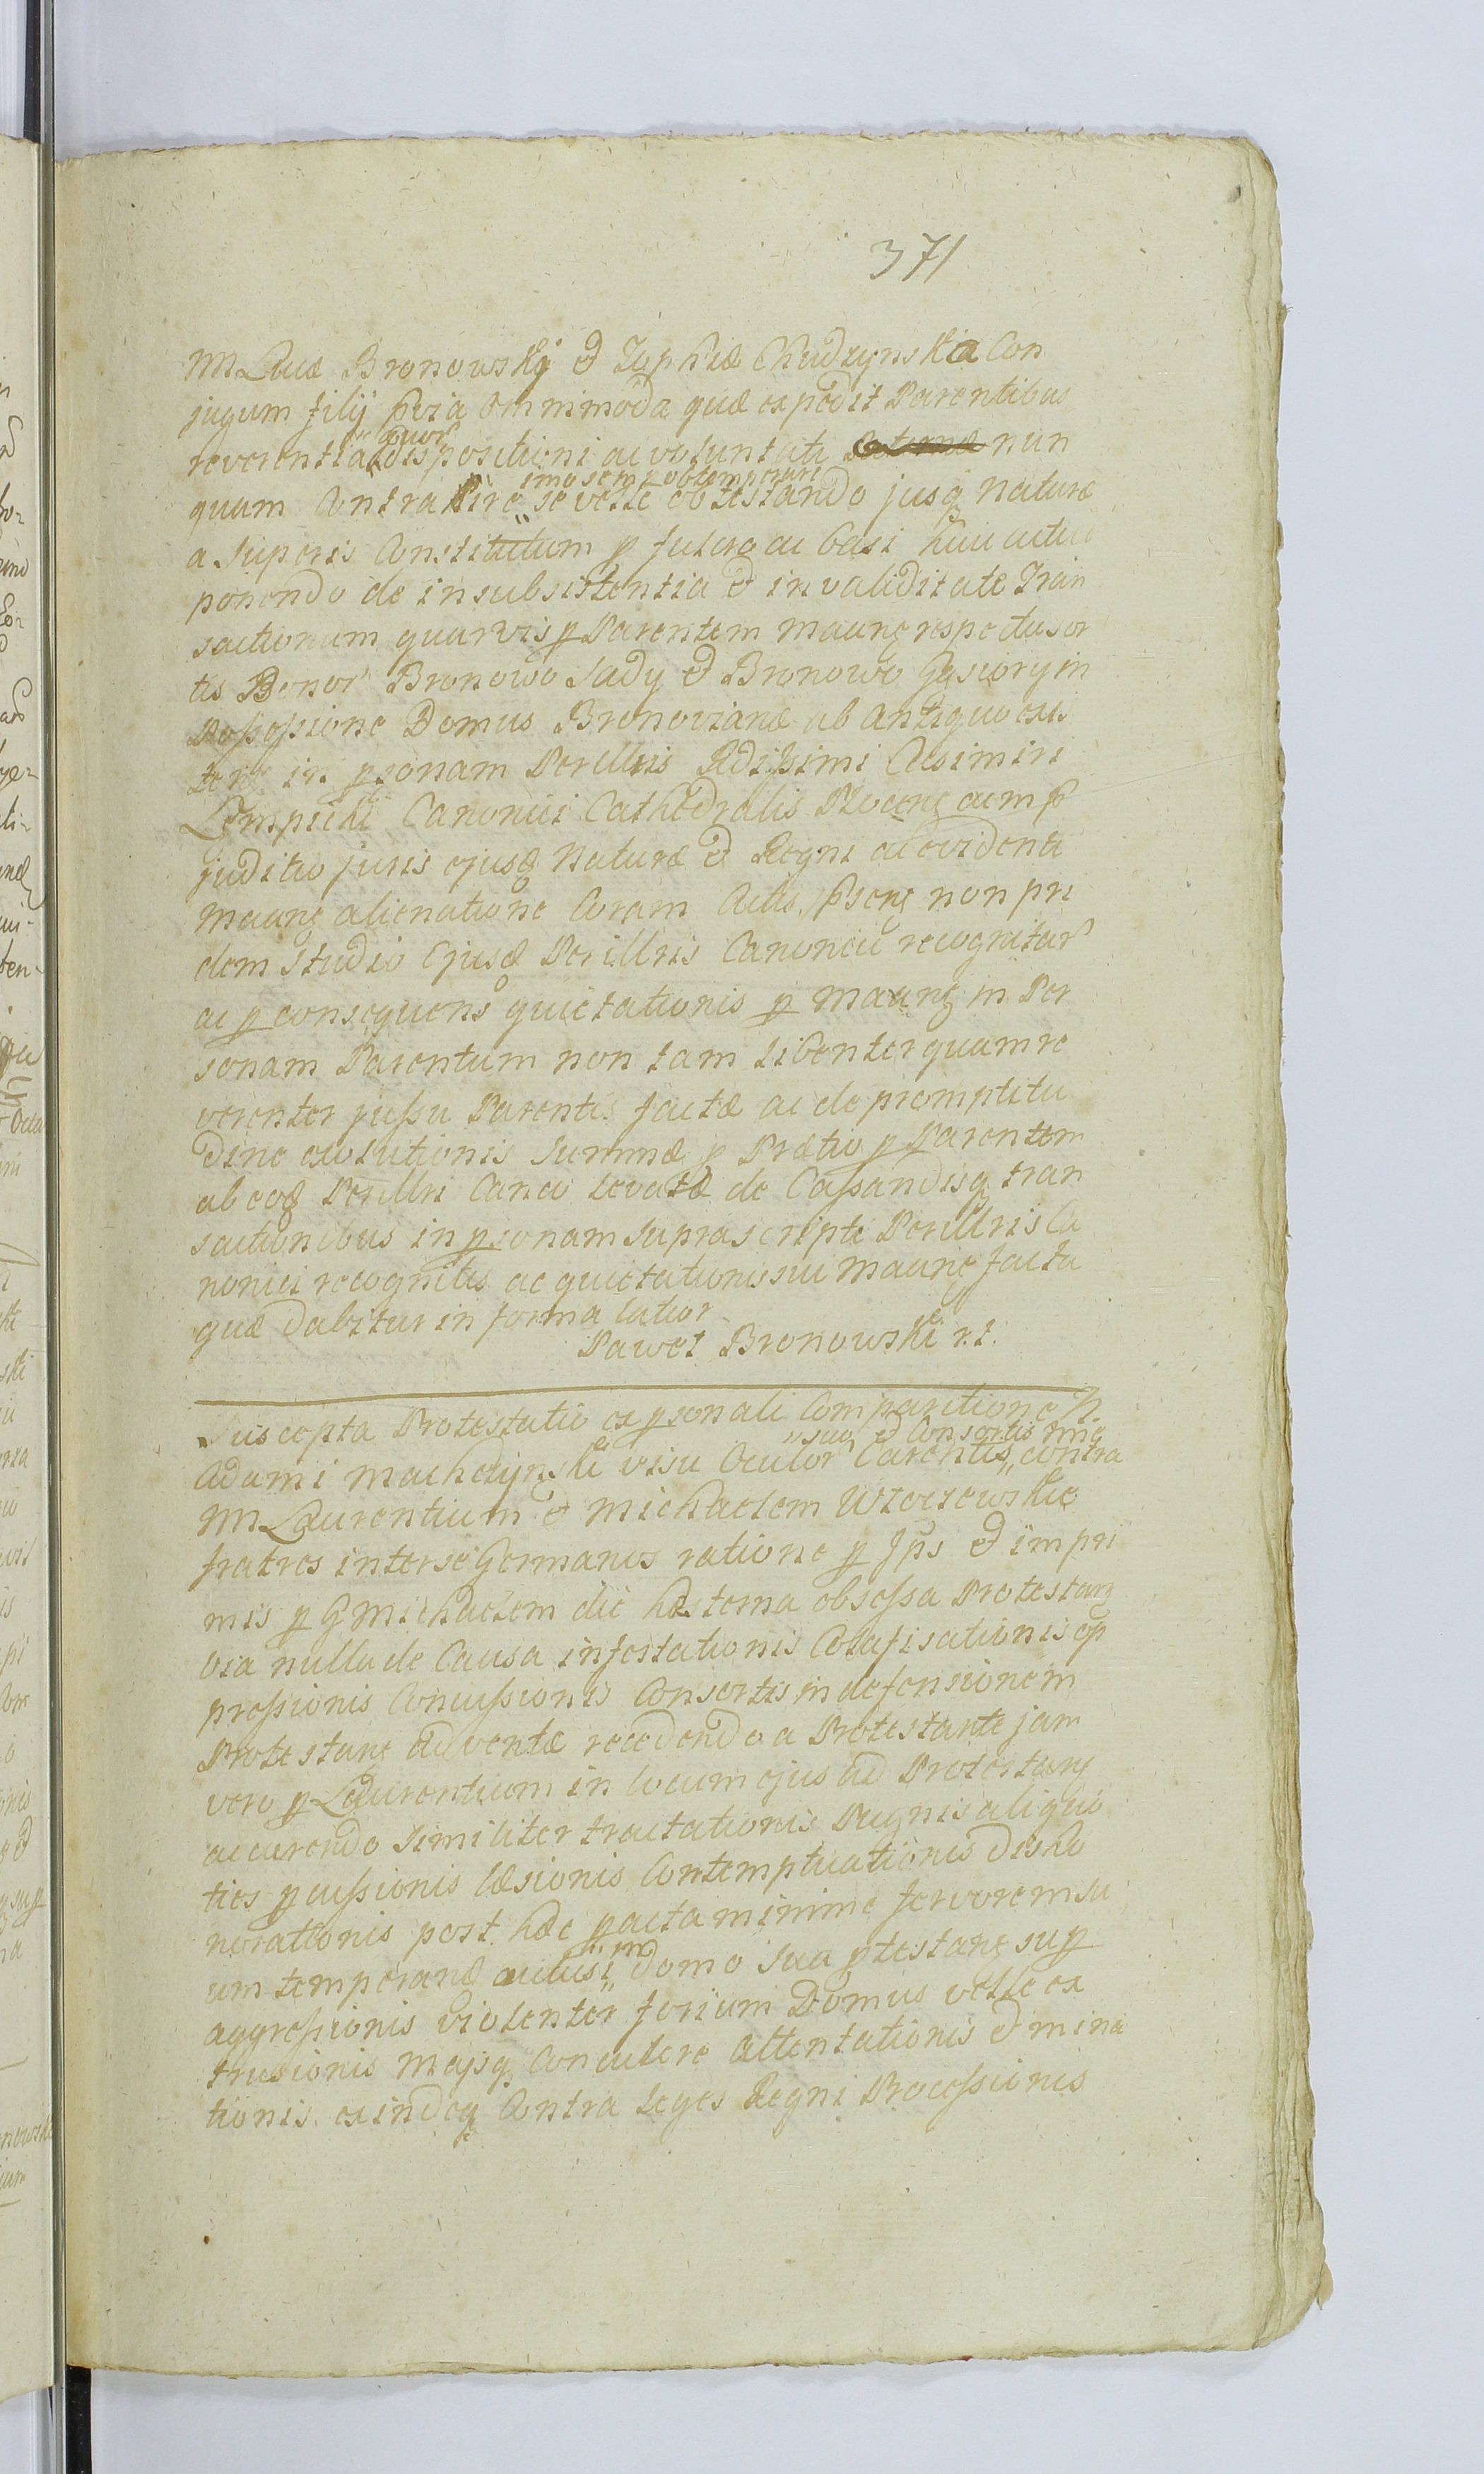 371
MM Lucæ Bronowskÿ & Zophiæ Chudzynskia Con
jugum filÿ p̃via omnimoda quæ expedit Parentibus
reverentia quor̃ dispositioni ac voluntati nun
quam Contra ire imo semp obtemperare se velle obtestando jusq naturæ
a Superis Constitutum p fulcro ac basi huic actui
ponendo de insubsistentia & invaliditate Tran
sactionum quarvis p Parentem Maang respectu sor
tis Bonor̃ Bronowo Sady & Bronowo Gąsiory in
Possessione Domus Bronovianæ ab antiquo exis
ten in psonam Perillris Rdissimi Casimiri
Lempicki Canonici Cathedralis Plocen cum p̃
juditio juris ejusd Naturæ & Regni ac evidenti
Maang alienatione Coram Actis p̃sen non pri
dem studio Ejusd Perillris Canonici recognitar̃
ac p consequens quietationis p Maang in Per
sonam Parentum non tam libenter quam re
verenter jussu Parentis factæ ac de promptitu
dine exolutionis Summæ p Prætio p Parentem
ab eod Perillri Canco levatæ de Cassandisq tran
sactionibus in psonam suprascripti Perillris Ca
nonici recognitis ac quietationis sui Maang facta
quæ dabitur in forma latior
Paweł Bronowski r.s.
Suscepta Protestatio ex psonali Comparitione N.
suo & Consortis nne
Adami Machczÿnski visu Oculor̃ Carentis contra
MM Laurentium & Michaelem Wzoczewskie
fratres inter se Germanos ratione p Ips & impri
mis p G Michaelem die hesterna obsessa Protestan
via nulla de Causa infestationis Colafisationis op
pressionis Concussionis Consortis in defensionem
Protestane adventæ recedendo a Protestante jam
vero p Laurentium in locum ejus ad Protestan
accurendo similiter tractationis Pugnis aliquo
ties pcussionis læsionis Contemptuationis desho
norationis post hæc pacta minime fervorem su
um temperand in domo sua ptestang sup
aggressionis violenter forium Domus velle ex
trusionis Majsq Concutere attentationis & mina
tionis exindeq Contra leges Regni Processionis